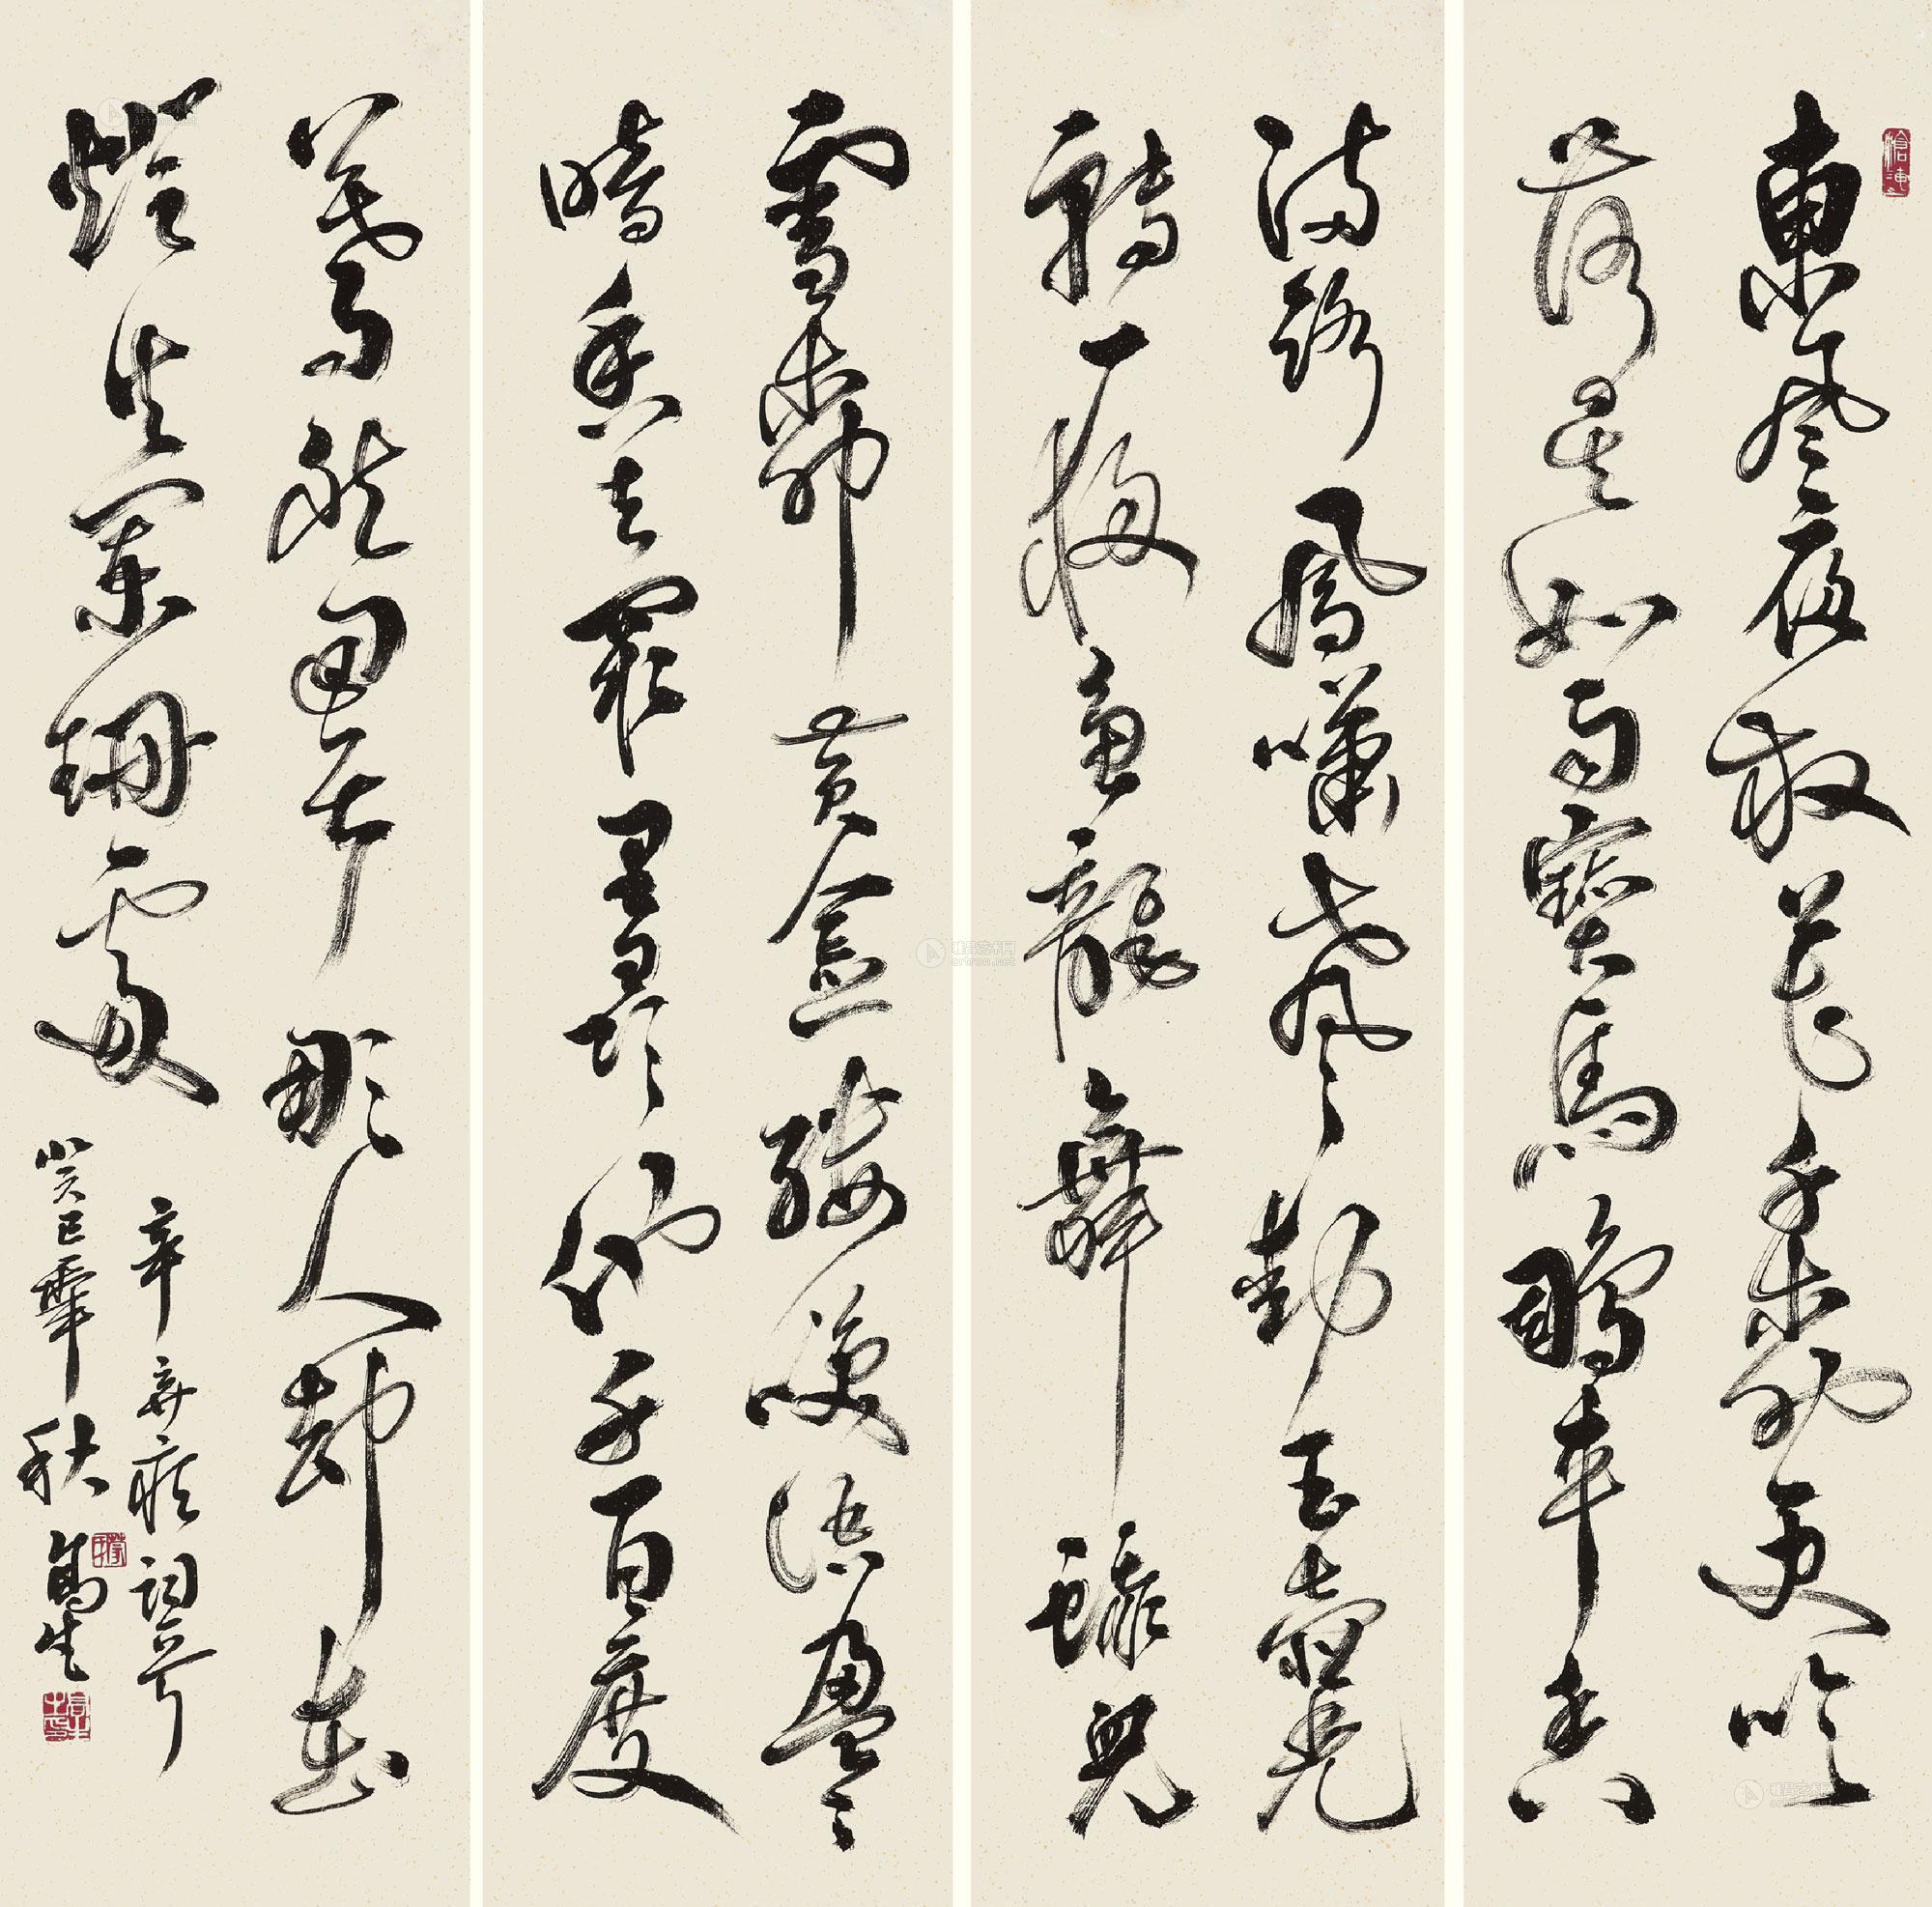 東風夜放花千樹更吹
落星如雨寶馬雕車香
滿路鳳嘯聲動玉壺光
轉一夜魚龍舞蛾兒
雪柳黃金縷咲語盈盈
暗香去眾裏尋他千百度
驀然回首那人卻在
燈火闌珊處
辛弃疾詞
癸巳肇秋